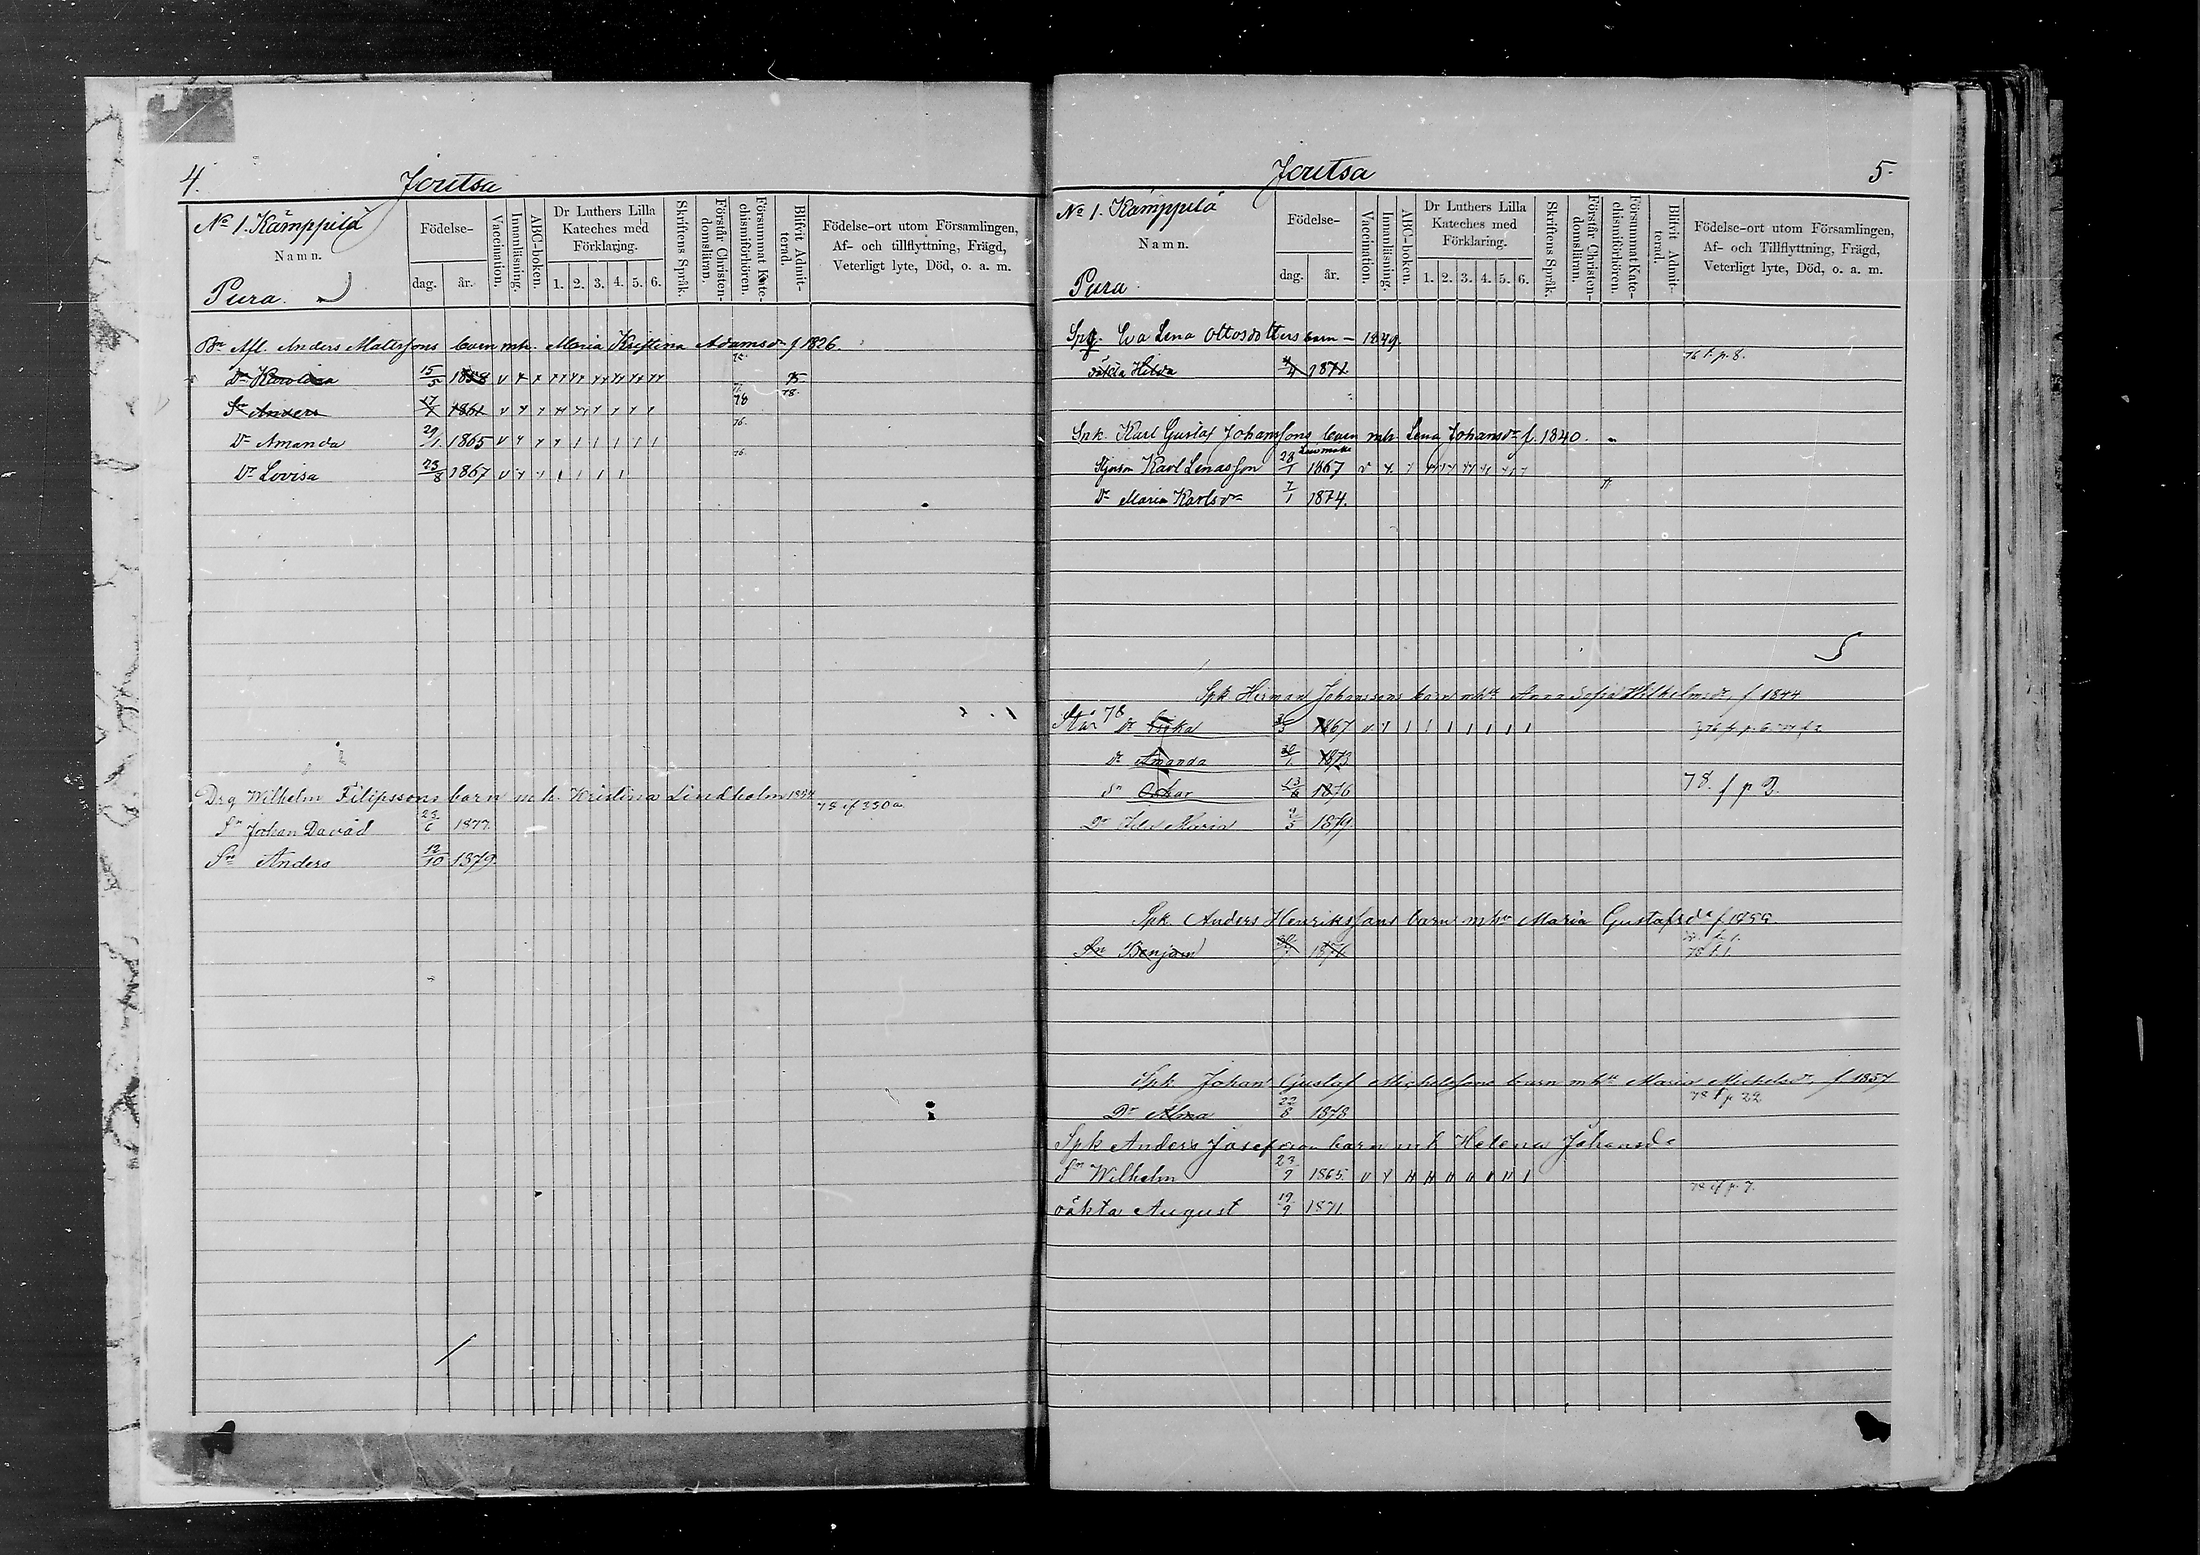 4.
Joutsa
No 1. Kämppilä
Namn.
Pura.
Födelse-
dag.
år.
Vaccination.
Innanläsning.
ABC-boken.
Dr Luthers Lilla
Kateches med
Förklaring.
1. 2. 3. 4. 5. 6.
Skriftens Språk.
Förstår Christen-
domsläran.
Försummat Kate-
chismiförhören.
Blifvit Admit-
terad.
Födelse-ort utom Församlingen,
Af- och tillflyttning, Frägd,
Veterligt lyte, Död, o. a. m.
Bn Afl. Anders Mattssons barn mh. Maria Kristina Adamsdr f 1826.
Dr Karolina 15/5 1858 75.
Sn Anders 17/7 1861 78 78.
Dr Amanda 29/1 1865 76.
Dr Lovisa 23/8 1867 76.
Drg Wilhelm Filipssons barn m.h. Kristina Lindholm 1854
Sn Johan David 23/6 1877.
Sn Anders 12/10 1879.
Joutsa
5.
No 1. Kämppilä
Namn.
Pura
Födelse-
dag.
år.
Vaccination.
Innanläsning.
ABC-boken.
Dr Luthers Lilla
Kateches med
Förklaring.
1. 2. 3. 4. 5. 6.
Skriftens Språk.
Förstår Christen-
domsläran.
Försummat Kate-
chismiförhören.
Blifvit Admit-
terad.
Födelse-ort utom Församlingen,
Af- och Tillflyttning, Frägd,
Veterligt lyte, Död, o. a. m.
Spg. Eva Lena Ottosdotters barn - 1849.
oäkta Hilda 4/4 1872 76 f. p. 8.
Spk. Karl Gustaf Johanssons barn mh Lena Johansdr f. 1840.
Karl Lenasson 28/1 1867
Dr Maria Karlsdr 7/1 1874.
Spk Herman Johanssons barn mhu Anna Sofia Wilhelmsdr, f 1844
Står 78 Dr 1867
Dr Amanda 1873
Sn Oskar 13/6 1876 78. f p
Dr 1879.
Spk. Anders Henrikssons barn mhu Maria Gustafsdr f 1859.
Sn Benjam 78 f. 1.
Spk Johan Gustaf Michelssons barn mhu Maria Michelsdr, f 1857
Dr Alma 22/8 1878 78 f p 22
Spk Anders Josefsson barn m h Helena Johansdr
Sn Wilhelm 23/9 1865.
oäkta August 19/9 1871 78 f p. 7.